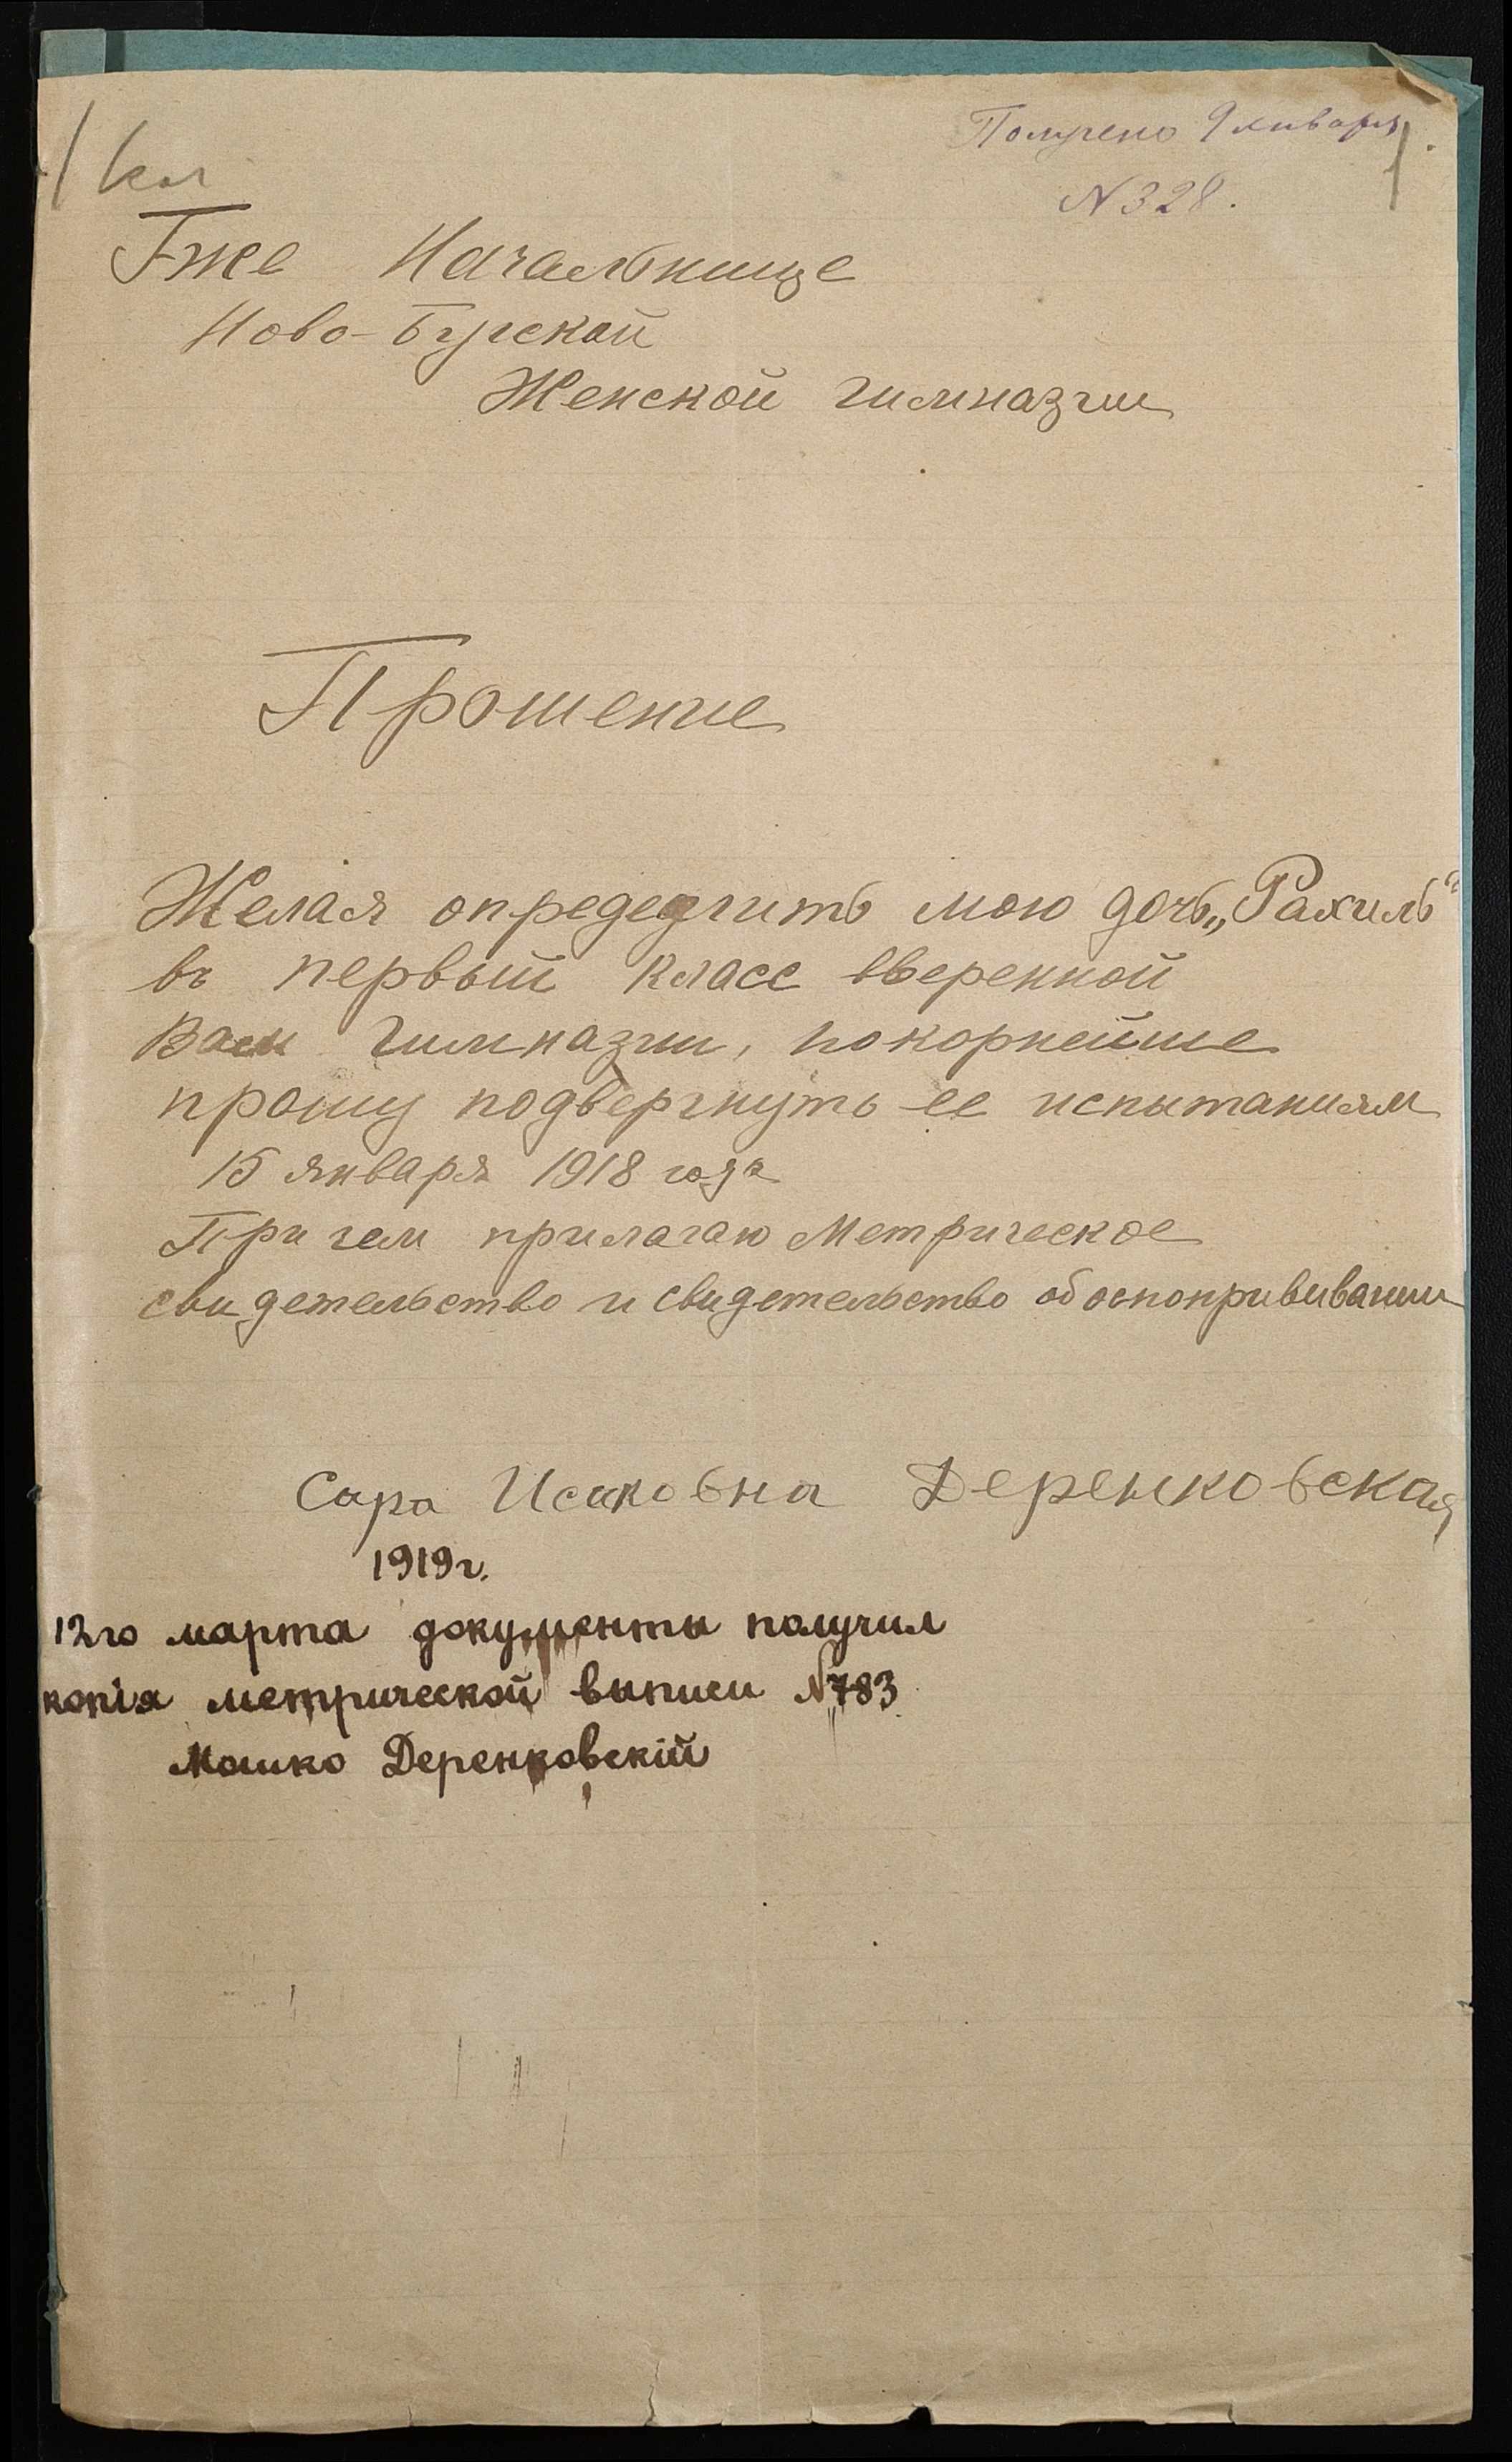 Получено 9 января
1 кл
N 328.
Гже Начальнице
Ново-Бугской
Женской гимназии
Прошение
Желая опредедлить мою дочь „Рахиль“
въ первый класс вверенной
Вам гимназии, покорнейше
прошу подвергнуть ее испытаниям
15 января 1918 года
При чем прилагаю Метрическое
свидетельство и свидетельство об оспопрививании
Сара Исаковна Деренковская
1919 г.
12го марта документы получил
копія метрической выписи №783
Мошко Деренковскій